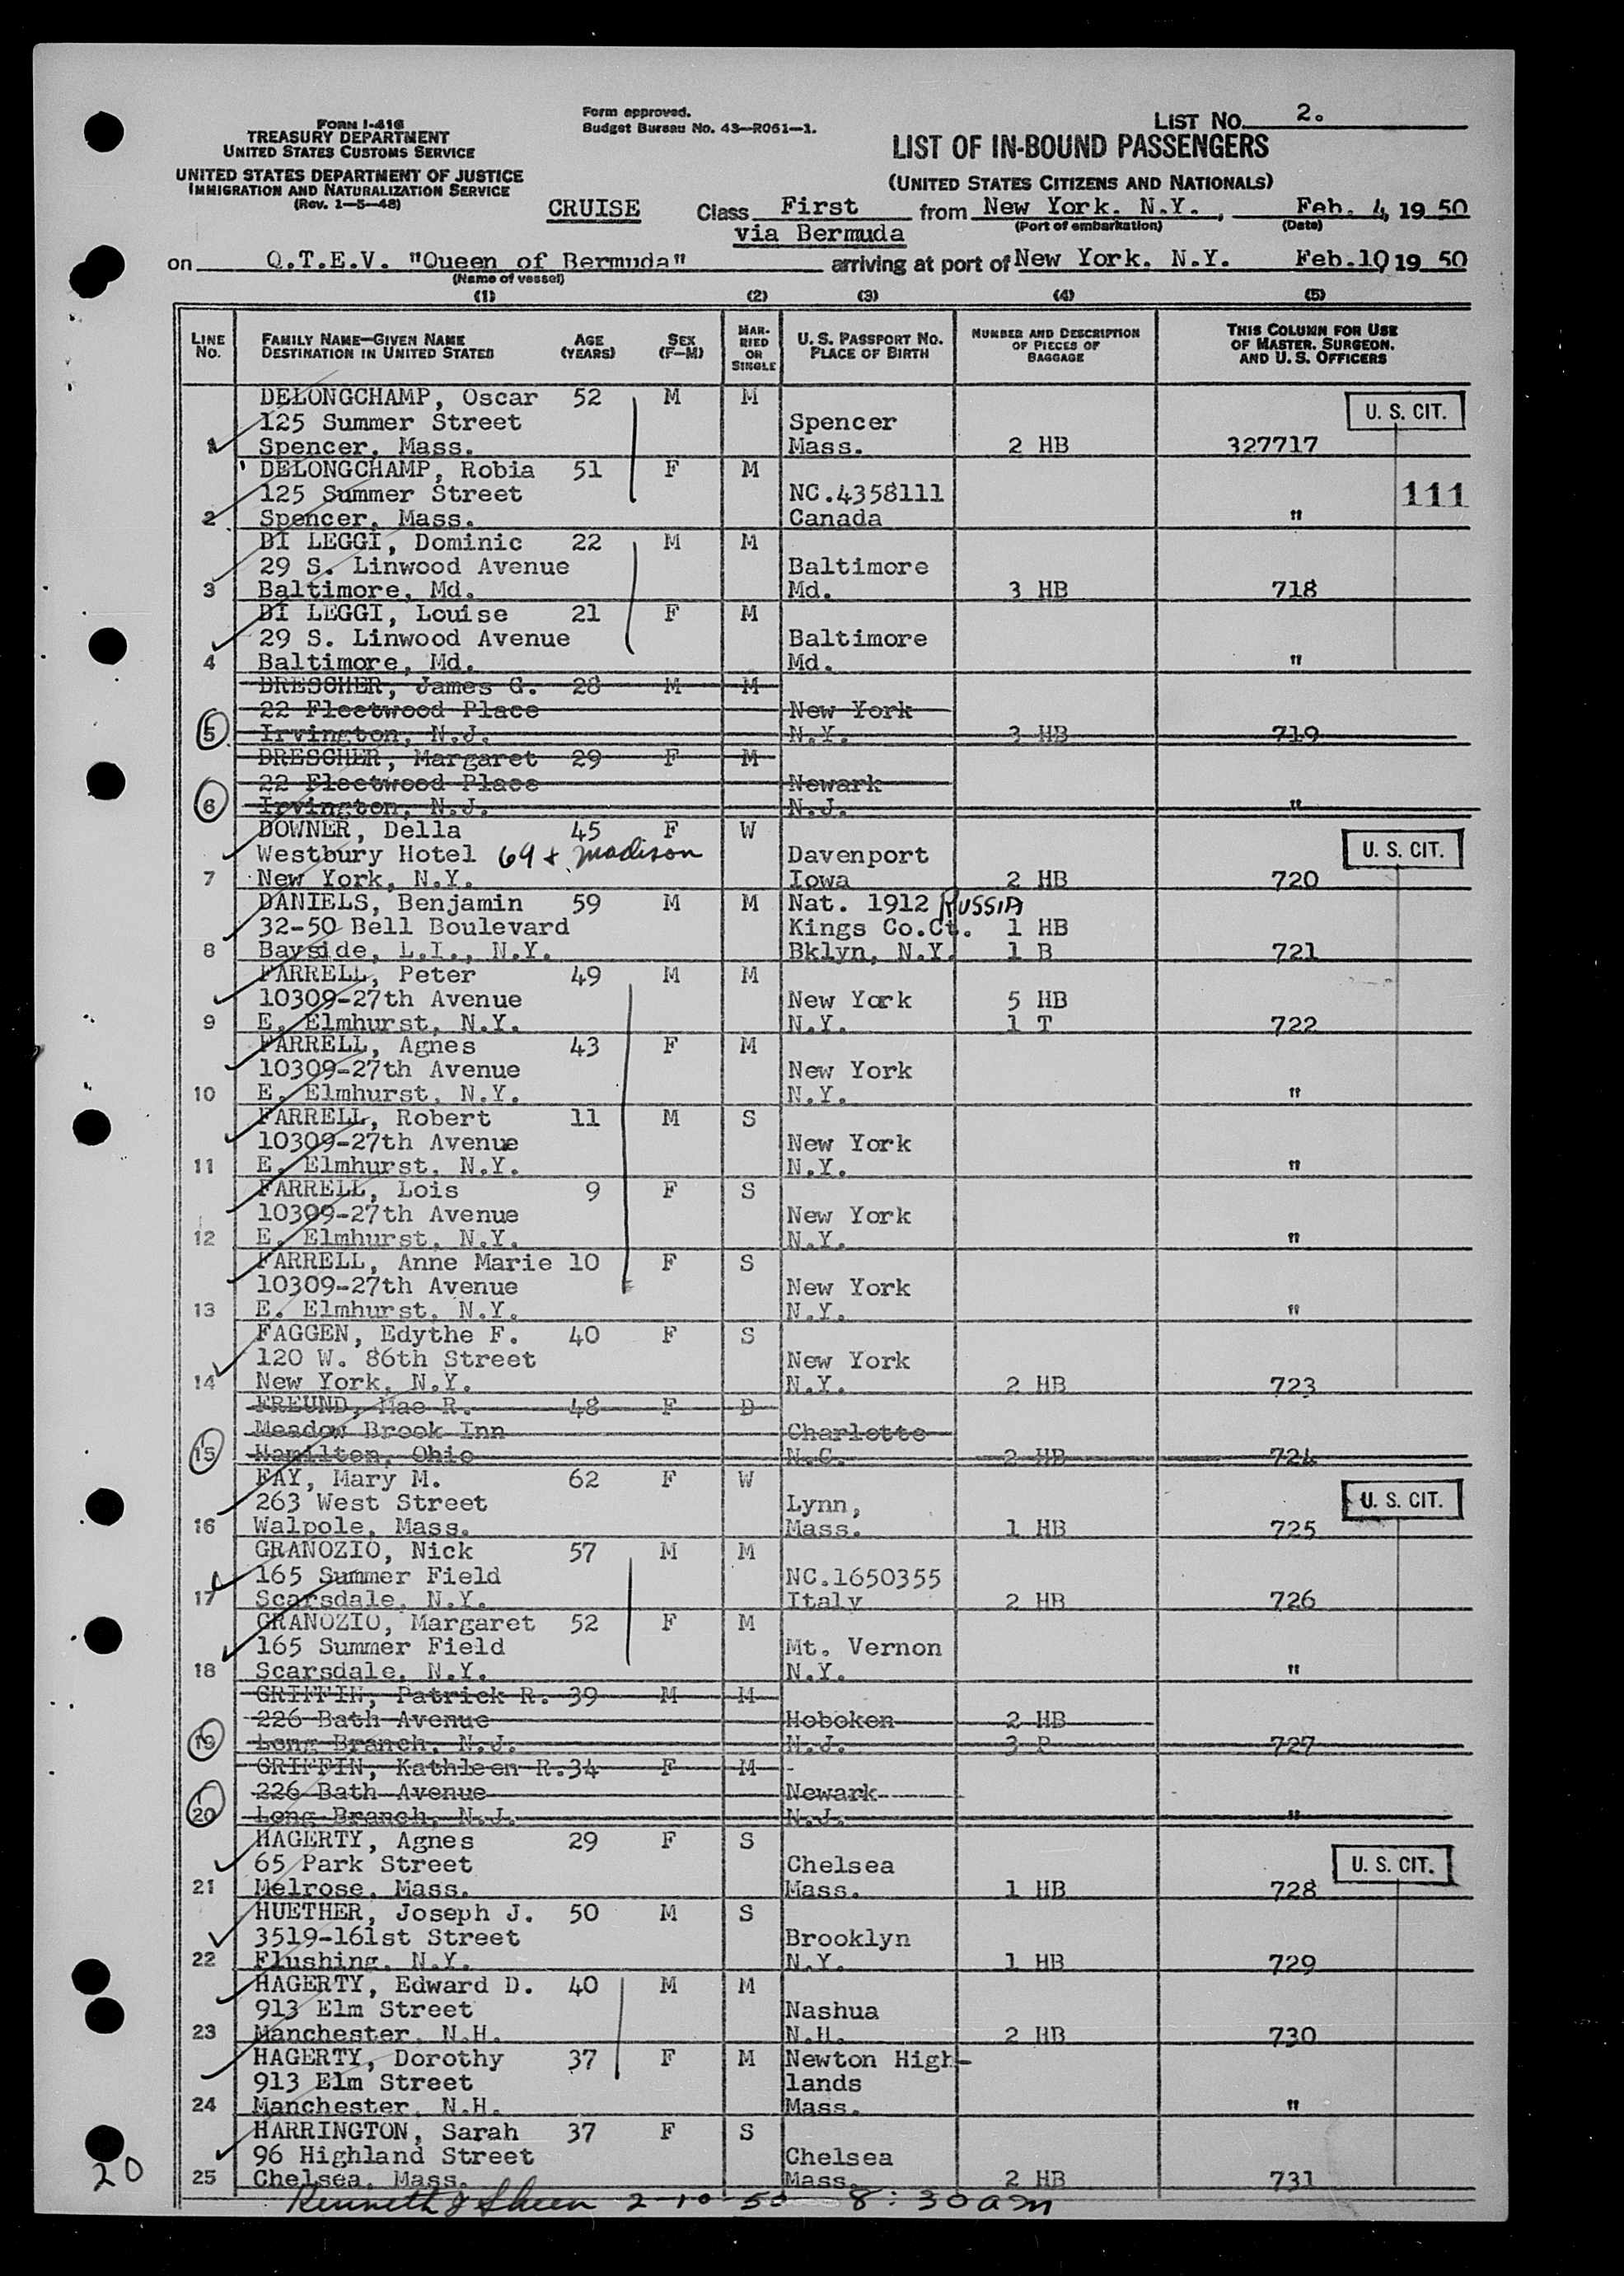 FORM I-416
TREASURY DEPARTMENT
UNITED STATES CUSTOMS SERVICE
UNITED STATES DEPARTMENT OF JUSTICE
IMMIGRATION AND NATURALIZATION SERVICE
(Rev. 1-5-48)
Form approved.
Budget Bureau No. 43-R061-1.
LIST NO. 2.
LIST OF IN-BOUND PASSENGERS
(UNITED STATES CITIZENS AND NATIONALS)
CRUISE Class First from New York, N.Y., Feb. 4, 1950
via Bermuda (Port of embarkation) (Date)
on Q.T.E.V. "Queen of Bermuda" arriving at port of New York, N.Y. Feb.10 19 50
(Name of vessel)
(1) (2) (3) (4) (5)
LINE NO. FAMILY NAME—GIVEN NAME DESTINATION IN UNITED STATES AGE (YEARS) SEX (F—M) MARRIED OR SINGLE U. S. PASSPORT NO. PLACE OF BIRTH NUMBER AND DESCRIPTION OF PIECES OF BAGGAGE THIS COLUMN FOR USE OF MASTER, SURGEON, AND U. S. OFFICERS
DELONGCHAMP, Oscar 52 M M U. S. CIT.
125 Summer Street Spencer
1 Spencer, Mass. Mass. 2 HB 327717
DELONGCHAMP, Robia 51 F M
125 Summer Street NC.4358111 111
2 Spencer, Mass. Canada "
DI LEGGI, Dominic 22 M M
29 S. Linwood Avenue Baltimore
3 Baltimore, Md. Md. 3 HB 718
DI LEGGI, Louise 21 F M
29 S. Linwood Avenue Baltimore
4 Baltimore, Md. Md. "
DRESCHER, James G. 28 M M
22 Fleetwood Place New York
5 Irvington, N.J. N.Y. 3 HB 719
DRESCHER, Margaret 29 F M
22 Fleetwood Place Newark
6 Irvington, N.J. N.J. "
DOWNER, Della 45 F W U. S. CIT.
Westbury Hotel 69 & Madison Davenport
7 New York, N.Y. Iowa 2 HB 720
DANIELS, Benjamin 59 M M Nat. 1912 RUSSIA
32-50 Bell Boulevard Kings Co.Ct. 1 HB
8 Bayside, L.I., N.Y. Bklyn, N.Y. 1 B 721
FARRELL, Peter 49 M M
10309-27th Avenue New York 5 HB
9 E. Elmhurst, N.Y. N.Y. 1 T 722
FARRELL, Agnes 43 F M
10309-27th Avenue New York
10 E. Elmhurst, N.Y. N.Y. "
FARRELL, Robert 11 M S
10309-27th Avenue New York
11 E. Elmhurst, N.Y. N.Y. "
FARRELL, Lois 9 F S
10309-27th Avenue New York
12 E. Elmhurst, N.Y. N.Y. "
FARRELL, Anne Marie 10 F S
10309-27th Avenue New York
13 E. Elmhurst, N.Y. N.Y. "
FAGGEN, Edythe F. 40 F S
120 W. 86th Street New York
14 New York, N.Y. N.Y. 2 HB 723
FREUND, Mae R. 48 F D
Meadow Brook Inn Charlotte
15 Hamilton, Ohio N.C. 2 HB 724
FAY, Mary M. 62 F W U. S. CIT.
263 West Street Lynn,
16 Walpole, Mass. Mass. 1 HB 725
GRANOZIO, Nick 57 M M
165 Summer Field NC.1650355
17 Scarsdale, N.Y. Italy 2 HB 726
GRANOZIO, Margaret 52 F M
165 Summer Field Mt. Vernon
18 Scarsdale, N.Y. N.Y. "
GRIFFIN, Patrick R. 39 M M
226 Bath Avenue Hoboken 2 HB
19 Long Branch, N.J. N.J. 3 P 727
GRIFFIN, Kathleen R. 34 F M
226 Bath Avenue Newark
20 Long Branch, N.J. N.J. "
HAGERTY, Agnes 29 F S U. S. CIT.
65 Park Street Chelsea
21 Melrose, Mass. Mass. 1 HB 728
HUETHER, Joseph J. 50 M S
3519-161st Street Brooklyn
22 Flushing, N.Y. N.Y. 1 HB 729
HAGERTY, Edward D. 40 M M
913 Elm Street Nashua
23 Manchester, N.H. N.H. 2 HB 730
HAGERTY, Dorothy 37 F M Newton High-
913 Elm Street lands
24 Manchester, N.H. Mass. "
HARRINGTON, Sarah 37 F S
96 Highland Street Chelsea
25 Chelsea, Mass. Mass. 2 HB 731
20
Kenneth J Sheen 2-10-50 8:30 am